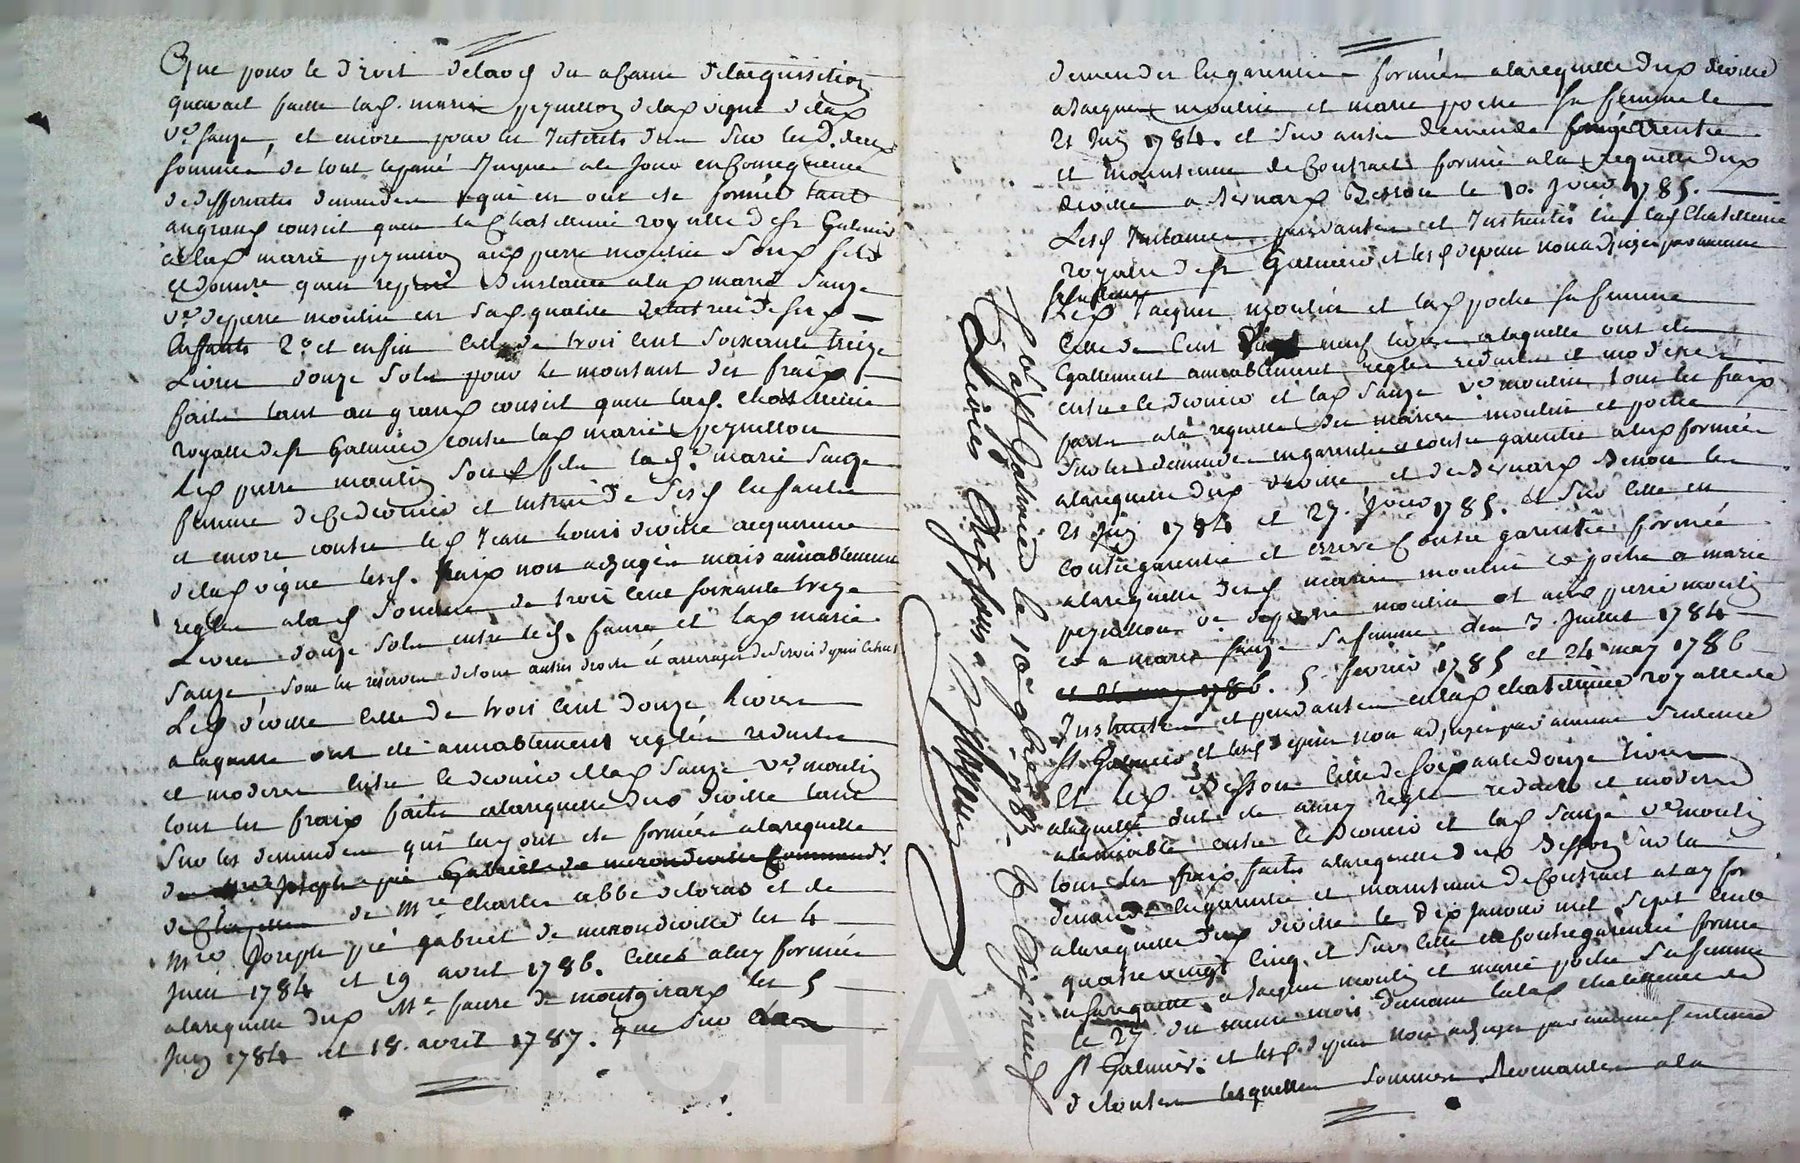 Que pour le droit de lods du a faure de lacquisition
quavoit faitte lad. marie peyrillon de lad vigne de lad
ve sauze, et encore pour les Interets dun sur les d. deux
sommes de tout le passé Jusques a ce Jour en Consequence
de differentes demandes qui en ont ete formées tant
au grand conseil quen la Chatellenie royalle de st Galmier
a lad marie peyrillon aud pierre moulin Son fils
et domire quen reprise Dinstance a lad marie Sauze
ve de pierre moulin en Sad qualité de tutrice de ses
Enfants 2° et enfin Celle de trois Cent Soixante treize
Livres douze Sols pour le montant des fraix
faits tant au grand conseil quen lad. Chatellenie
royalle de st Galmier contre lad marie peyrillon
led pierre moulin Son fils lad. marie Sauze
femme de Ce dernier et tutrice de Sesd Enfants
et encore contre led Jean Louis deville acquereur
de lad vigne lesd. fraix non adjugés mais amiablement
reglés a lad Somme de trois Cent soixante treize
Livres douze Sols entre led. faure et lad marie
Sauze, sous les reserves de tous autres droits et arrerages de Servis depuis
Led deville Celle de trois Cent Douze Livres
a laquelle ont été amiablement reglés reduits
et moderés entre le dernier et lad Sauze ve moulin
tous les fraix faits a la requette dud deville tant
Sur les demandes qui luy ont ete formées a la requette
de Mre Joseph pié Gabriel de merondeville Command.r
de Chazelles de Mre Charles abbé de loras et de
Mre Joseph pié gabriel de merondeville les 4
Juin 1784 et 19 avril 1786. Celles a luy formées
a la requette dud Me faure de montgirard les 5
Juin 1784 et 18. avril 1787. que Sur
demandes En garentie formées a la requette dud deville
a Jacques moulin et marie poche sa femme le
21 Juin 1784. et Sur autre demande vente
et maintenue de Contract formée a la requette dud
deville a Bernard Besson le 10. Janvier 1785.
Lesd Instances pendantes et Instruites En lad Chatellenie
royalle de st Galmier et lesd depens non adjugés par aucune
Sentence
Led Jacques moulin et lad poche sa femme
Celle de Cent neuf livres a laquelle ont ete
Egallement amiablement reglés reduits et moderés
entre le dernier et lad Sauze ve moulin tous les fraix
faits a la requette des mariés moulin et poche
Sur les demandes en garentie et contre garentie a eux formées
a la requette dud deville et de Bernard Besson les
21 Juin 1784 et 27. Janvier 1785. et Sur Celle en
Contregarentie et arriere Contre garentie formée
a la requette desd mariés moulin et poche a marie
peyrillon ve de pierre moulin et aud pierre moulin
et a marie Sauze Sa femme des 3. Juillet 1784
et 21 may 1786. 5. fevrier 1785 et 24 may 1786
Instruites et pendantes en lad Chatellenie royalle de
st Galmier et lesd depens non adjugés par aucune Sentence
Et led Besson Celle de soixante douze livres
a laquelle ont ete aussy reglés reduits et moderés
a lamiable entre le dernier et lad Sauze ve moulin
tous les fraix faits a la requette dud Besson Sur la
demande En garentie et maintenue de Contract a luy for
a la requette dud deville le Dix Janvier mil Sept Cents
quatre vingt Cinq et Sur Celle en Contregarentie formée
a sa requette a Jacques moulin et marie poche Sa femme
le 27 du meme mois de la lad Chatellenie de
st Galmier. et lesd. depens non adjugés par aucune Sentence
de toutes lesquelles Sommes Revenantes a la
Coâtt. Galmier le 10 9bre 1787
Livres Dix Sous